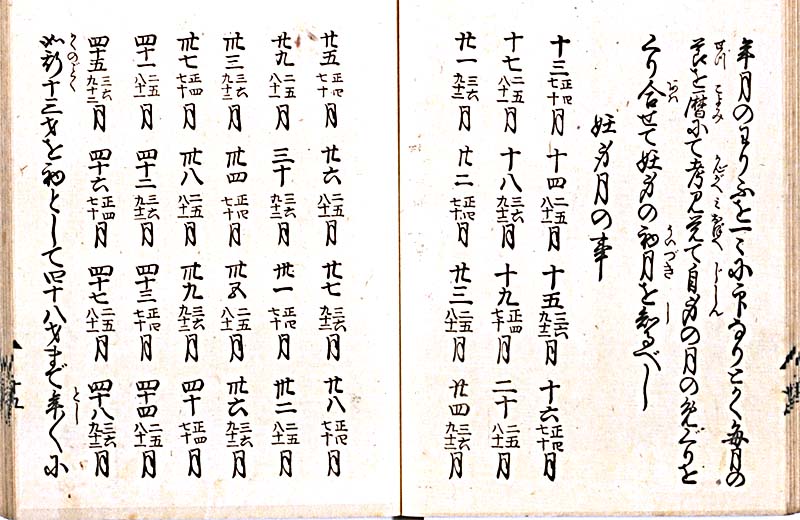 年月のわりふを一々に印有りとかく毎月の
節を暦にて考見覚て自身の月のめぐりを
くり合せて妊身の初月を知るべし
妊身月の事
十三正四七十月 十四二五八十一月 十五三六九十二月 十六正四七十月
十七二五八十一月 十八三六九十二月 十九正四七十月 二十二五八十一月
廿一三六九十二月 廿二正四七十月 廿三二五八十一月 廿四三六九十二月
廿五正四七十月 廿六二五八十一月 廿七三六九十二月 廿八正四七十月
廿九二五八十一月 三十三六九十二月 卅一正四七十月 卅二二五八十一月
卅三三六九十二月 卅四正四七十月 卅五二五八十一月 卅六三六九十二月
卅七正四七十月 卅八二五八十一月 卅九三六九十二月 四十正四七十月
四十一二五八十一月 四十二三六九十二月 四十三正四七十月 四十四二五八十一月
四十五三六九十二月 四十六正四七十月 四十七二五八十一月 四十八三六九十二月
如斯十三才を初として四十八才まで年々に